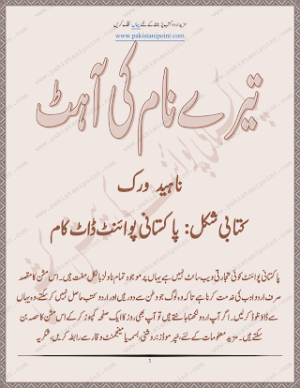 مزید اردو کتب پڑھنے کے لئے یہاں کلک کریں
www.pakistanipoint.com
تیرے نام کی آہٹ
ناہید ورک
کتابی شکل: پاکستانی پوائنٹ ڈاٹ کام
پاکستانی پوائنٹ کوئی تجارتی ویب سائٹ نہیں ہے یہاں پر موجود تمام ناولز بالکل مفت ہیں۔ اس مشن کا مقصد
صرف اردو ادب کی خدمت کرنا ہے تاکہ وہ لوگ جو وطن سے دور ہیں اور اردو کتب حاصل نہیں کر سکتے، وہ یہاں
سے ڈاؤنلوڈ کر لیں۔ اگر آپ اردو لکھنا جانتے ہیں تو آپ بھی روز کا ایک صفحہ کمپوز کر کے اس مشن کا حصہ بن
سکتے ہیں۔ مزید معلومات کے لئے، غیر موڈز: روشنی، اسمبا منیجمنٹ وقار سے رابطہ کریں، شکریہ
1